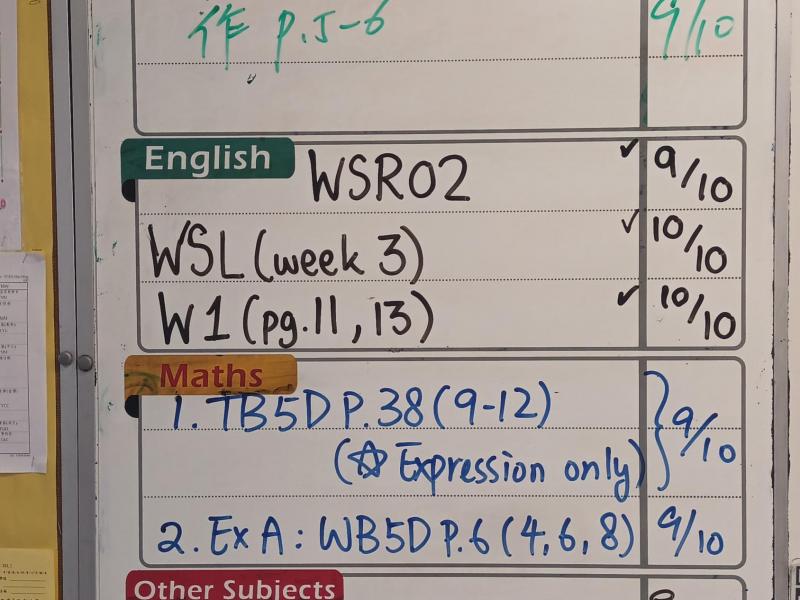 作 P.5-6 9/10
English
WSR02 ✓ 9/10
WSL (week 3) ✓ 10/10
W1 (pg.11, 13) ✓ 10/10
Maths
1. TB5D P.38 (9-12)
(☆ Expression only) } 9/10
2. Ex A: WB5D P.6 (4, 6, 8) 9/10
Other Subjects